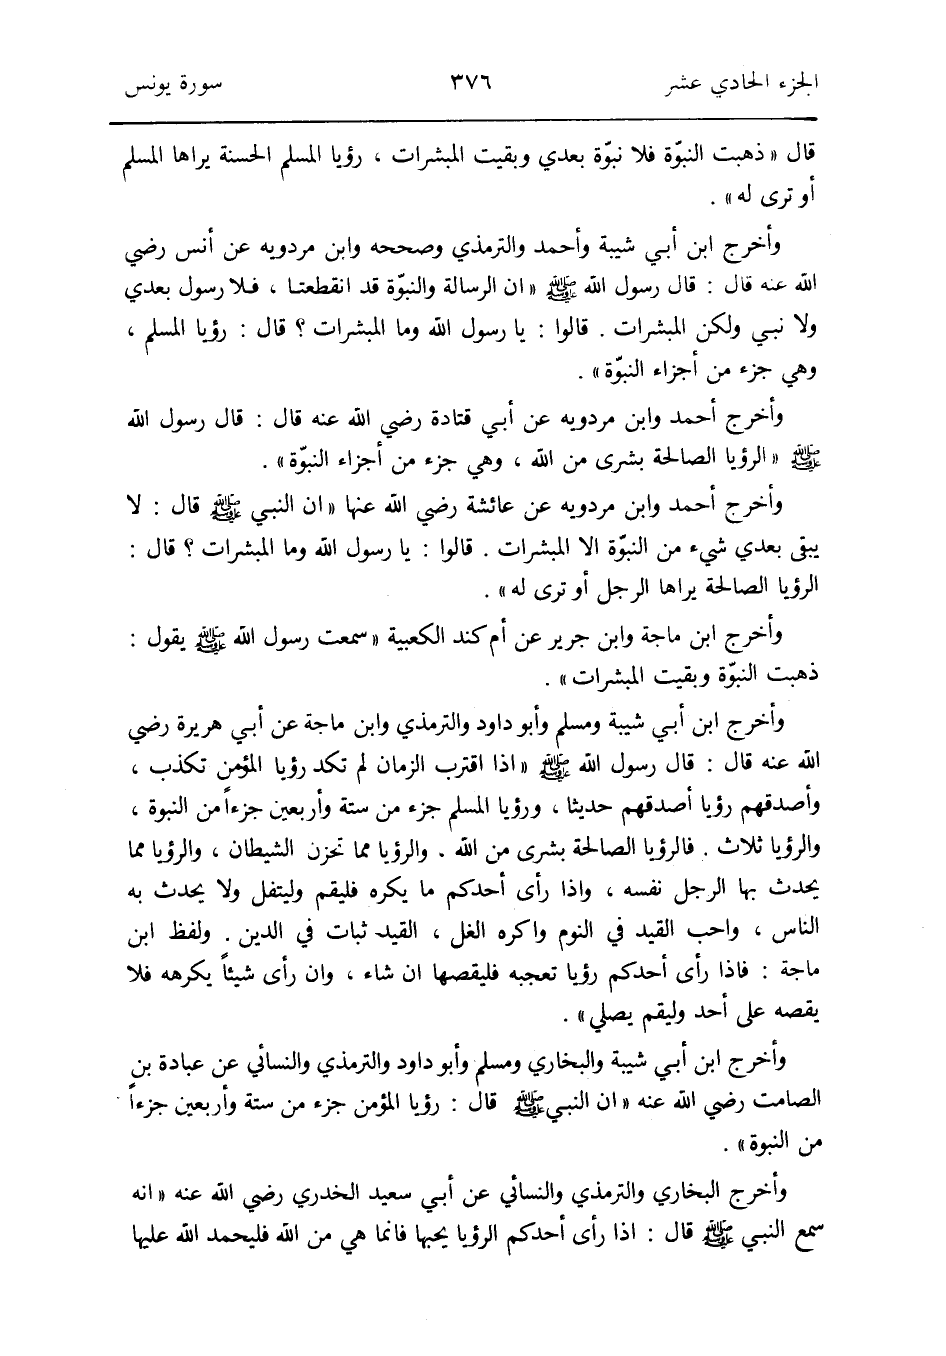 الجزء الحادي عشر ٣٧٦ سورة يونس
قال « ذهبت النبوّة فلا نبوّة بعدي وبقيت المبشرات ، رؤيا المسلم الحسنة يراها المسلم
أو ترى له » .
وأخرج ابن أبي شيبة وأحمد والترمذي وصححه وابن مردويه عن أنس رضي
الله عنه قال : قال رسول الله ﷺ « ان الرسالة والنبوّة قد انقطعتا ، فلا رسول بعدي
ولا نبي ولكن المبشرات . قالوا : يا رسول الله وما المبشرات ؟ قال : رؤيا المسلم ،
وهي جزء من أجزاء النبوّة » .
وأخرج أحمد وابن مردويه عن أبي قتادة رضي الله عنه قال : قال رسول الله
ﷺ « الرؤيا الصالحة بشرى من الله ، وهي جزء من أجزاء النبوّة » .
وأخرج أحمد وابن مردويه عن عائشة رضي الله عنها « ان النبي ﷺ قال : لا
يبقى بعدي شيء من النبوّة الا المبشرات . قالوا : يا رسول الله وما المبشرات ؟ قال :
الرؤيا الصالحة يراها الرجل أو ترى له » .
وأخرج ابن ماجة وابن جرير عن أم كند الكعبية « سمعت رسول الله ﷺ يقول :
ذهبت النبوّة وبقيت المبشرات » .
وأخرج ابن أبي شيبة ومسلم وأبو داود والترمذي وابن ماجة عن أبي هريرة رضي
الله عنه قال : قال رسول الله ﷺ « اذا اقترب الزمان لم تكد رؤيا المؤمن تكذب ،
وأصدقهم رؤيا أصدقهم حديثا ، ورؤيا المسلم جزء من ستة وأربعين جزءاً من النبوة ،
والرؤيا ثلاث . فالرؤيا الصالحة بشرى من الله . والرؤيا مما تحزن الشيطان ، والرؤيا مما
يحدث بها الرجل نفسه ، واذا رأى أحدكم ما يكره فليقم وليتفل ولا يحدث به
الناس ، واحب القيد في النوم واكره الغل ، القيد ثبات في الدين . ولفظ ابن
ماجة : فاذا رأى أحدكم رؤيا تعجبه فليقصها ان شاء ، وان رأى شيئاً يكرهه فلا
يقصه على أحد وليقم يصلي » .
وأخرج ابن أبي شيبة والبخاري ومسلم وأبو داود والترمذي والنسائي عن عبادة بن
الصامت رضي الله عنه « ان النبي ﷺ قال : رؤيا المؤمن جزء من ستة وأربعين جزءاً
من النبوة » .
وأخرج البخاري والترمذي والنسائي عن أبي سعيد الخدري رضي الله عنه « انه
سمع النبي ﷺ قال : اذا رأى أحدكم الرؤيا يحبها فانما هي من الله فليحمد الله عليها